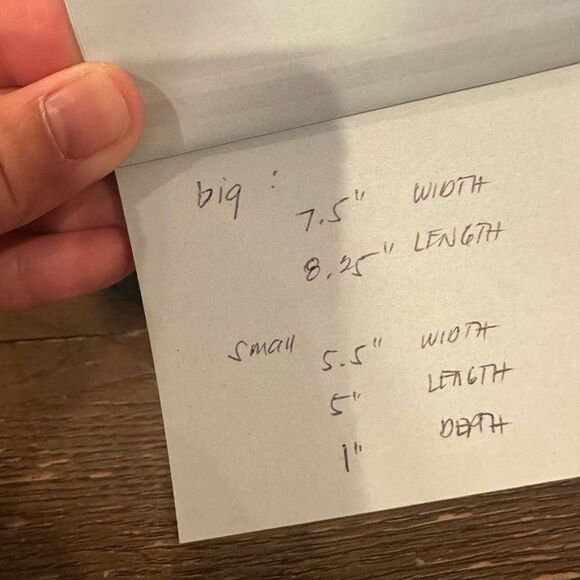 big :
7.5" WIDTH
8.25" LENGTH
small 5.5" WIDTH
5" LENGTH
1" DEPTH